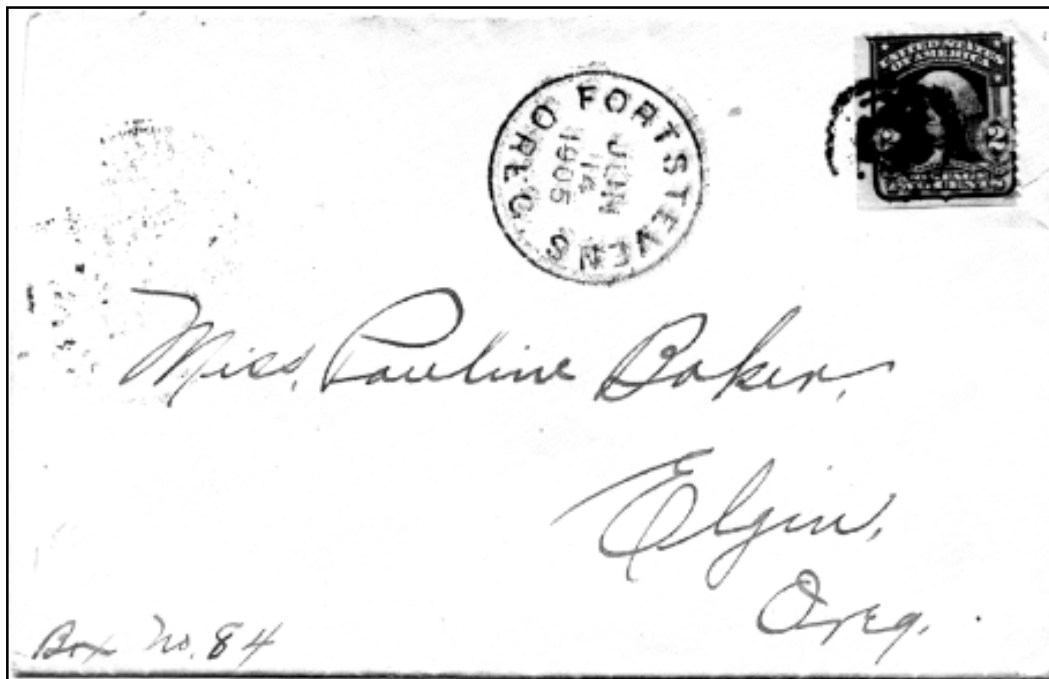 FORT STEVENS OREG
JUN
14
1905
UNITED STATES
OF AMERICA
2 2
TWO CENTS
Miss, Pauline Baker,
Elgin,
Oreg.
Box No. 84